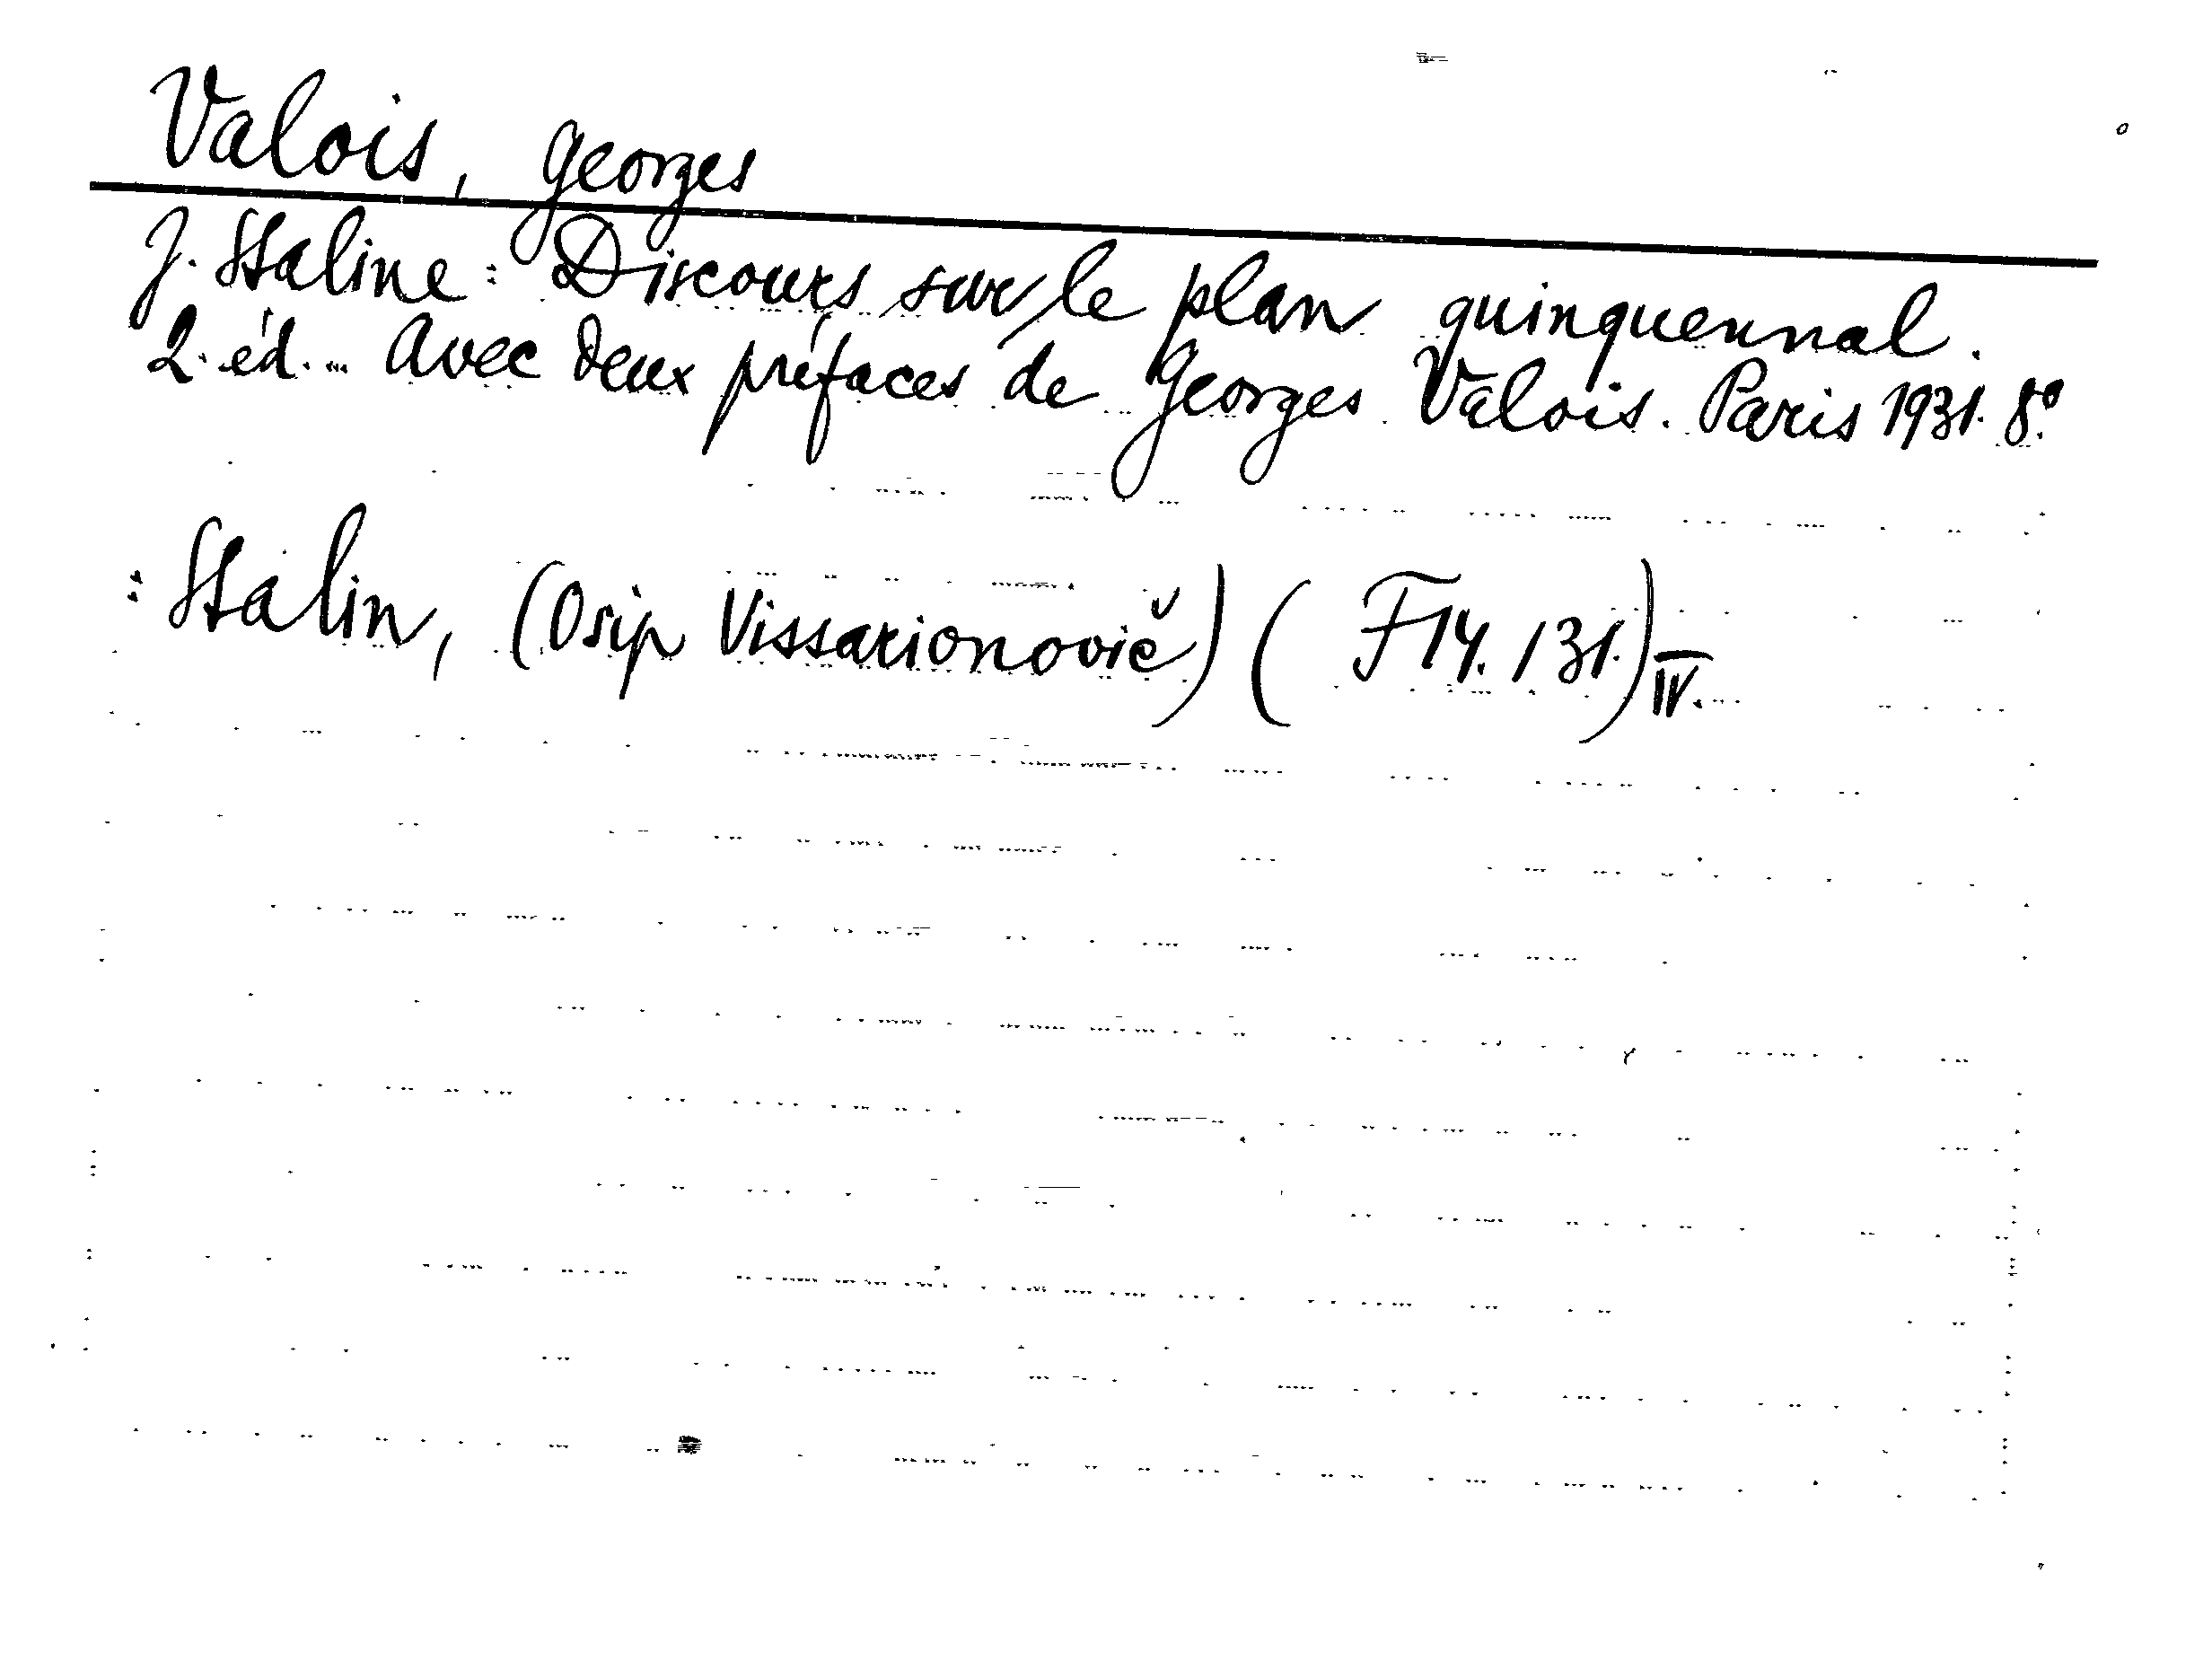 Valois, Georges
J. Staline: Discours sur le plan quinquennal.
2. éd. ... Avec deux préfaces de Georges Valois. Paris 1931. 8°.
: Stalin, (Osip Vissarionovič) (F14. 131.) IV.